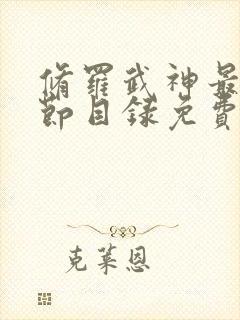 脩羅武神最
節目錄免費
克萊恩